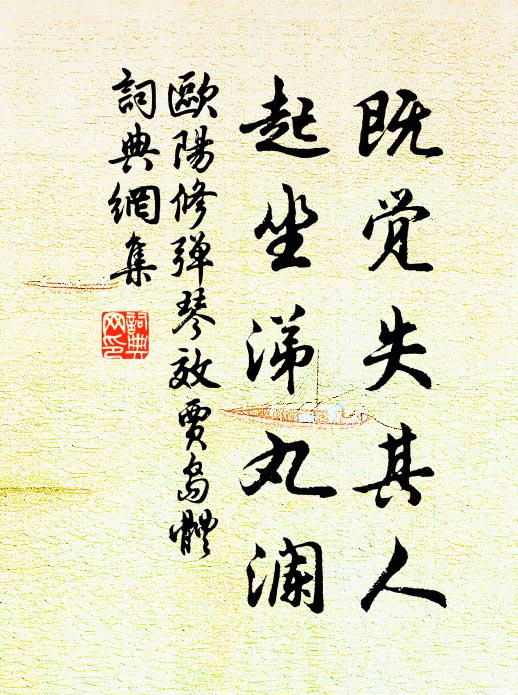 既觉失其人
起坐涕丸澜
歐陽修弹琴效贾岛體
詞典網集
詞典網印